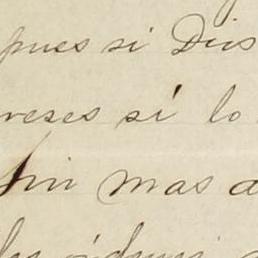 pues si Dios
veses si lo
Sin mas a